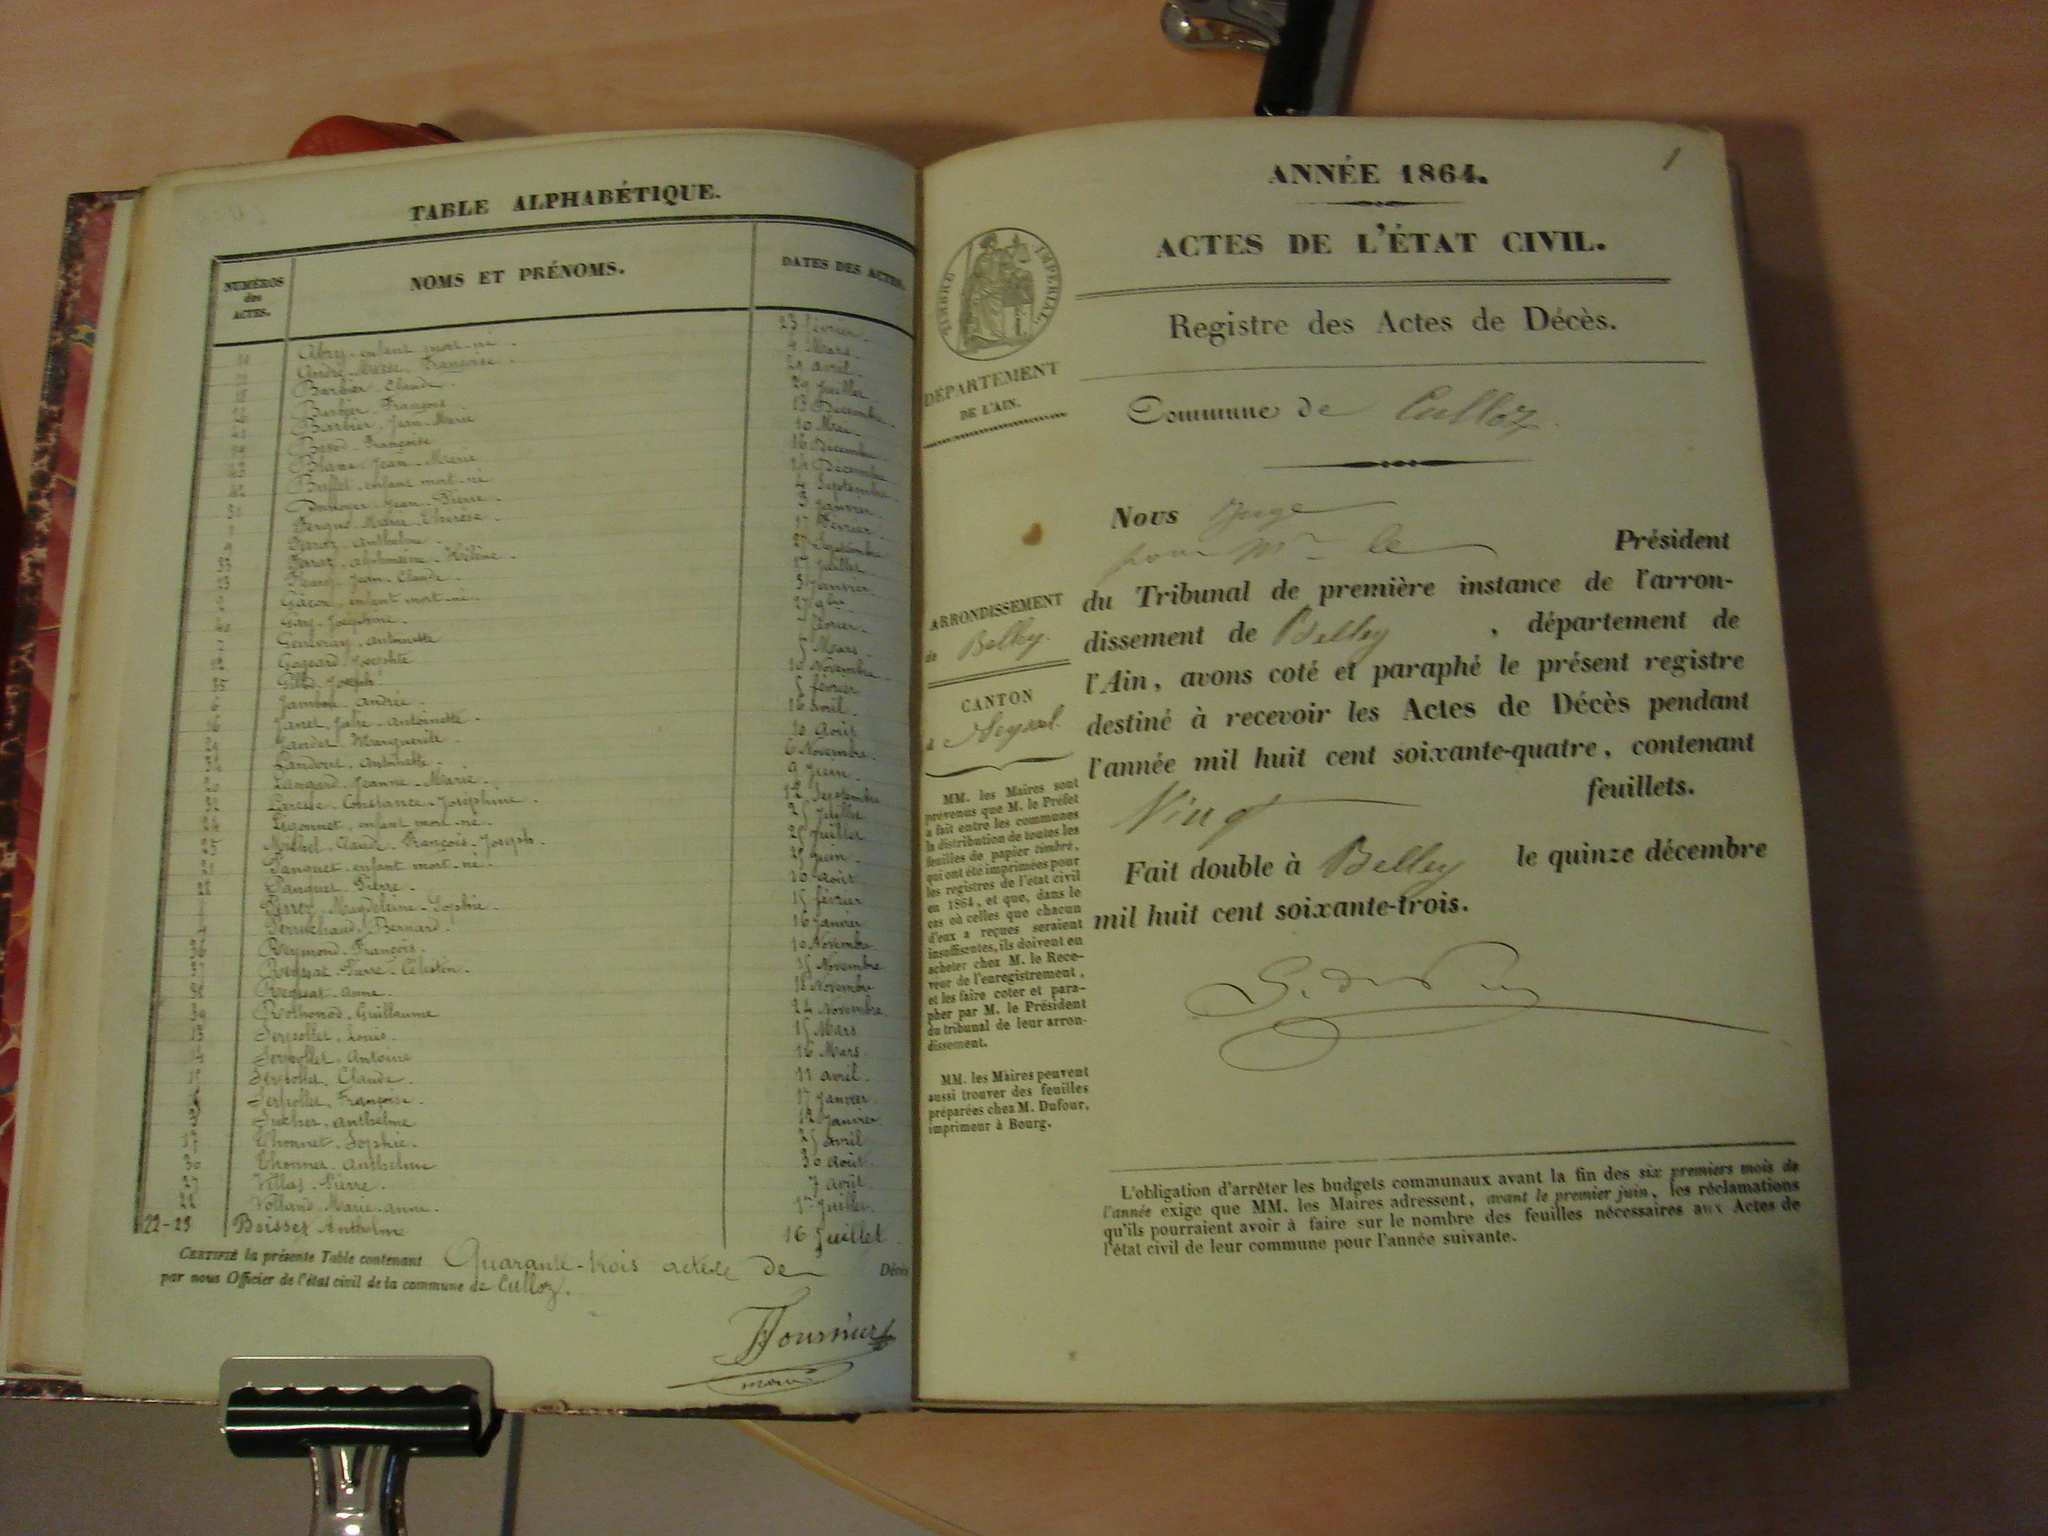 TABLE ALPHABÉTIQUE.
NUMÉROS des ACTES. NOMS ET PRÉNOMS. DATES DES ACTES.
Abry, enfant mort-né 23 février
André Marie Françoise 4 Mars
Barbier Claude 29 avril
Barbier François 29 Juillet
41 Barbier, Jean-Marie 13 Décembre
Françoise 10 Mai
43 Blanc Jean-Marie 16 Décembre
42 Buffet, enfant mort-né 14 Décembre
31 Jean-Pierre 4 Septembre
Marie Thérèse 3 Janvier
9 Ferroz Anthelme 17 février
33 Ferroz, Hélène 27 Septembre
23 Jean-Claude 17 Juillet
enfant mort-né 3 Janvier
40 Gay, Joséphine 27 9bre
7 Antoinette février
12 Josephte 5 Mars
35 Joseph 10 Novembre
6 Jambon Andrée 5 février
16 Janet, Julie-Antoinette 16 avril
29 Marguerite 10 Août
34 Antoinette 6 Novembre
20 Jeanne-Marie 9 Juin
32 Constance-Joséphine 12 Septembre
24 enfant mort-né 25 Juillet
25 Michel Claude-François-Joseph 25 Juillet
21 Panquet enfant mort-né 25 Juin
28 Panquet Pierre 10 Août
8 Perroz, Magdeleine-Sophie 15 février
4 Perruchaud, Bernard 16 Janvier
36 Reymond François 10 Novembre
37 Reyssat Pierre-Célestin 15 Novembre
38 Reyssat Anne 18 Novembre
39 Rothonod, Guillaume 24 Novembre
13 Serpollet, Louis 15 Mars
14 Serpollet, Antoine 16 Mars
15 Serpollet, Claude 11 avril
5 Serpollet, Françoise 17 Janvier
3 Anthelme 12 Janvier
17 Thonnet, Sophie 25 avril
30 Thonnet, Anthelme 30 août
27 Pierre 7 août
22 Volland Marie-Anne 1er Juillet
22-23 Boissez Anthelme 16 Juillet
CERTIFIÉ la présente Table contenant Quarante-trois actes de Décès
par nous Officier de l'état civil de la commune de Culloz.
Fournier
maire
1
ANNÉE 1864.
ACTES DE L'ÉTAT CIVIL.
TIMBRE IMPÉRIAL
Registre des Actes de Décès.
DÉPARTEMENT
DE L'AIN.
Commune de Culloz
Nous Juge
pour Mr le Président
du Tribunal de première instance de l'arron-
dissement de Belley , département de
l'Ain, avons coté et paraphé le présent registre
destiné à recevoir les Actes de Décès pendant
l'année mil huit cent soixante-quatre, contenant
Vingt feuillets.
Fait double à Belley le quinze décembre
mil huit cent soixante-trois.
ARRONDISSEMENT
de Belley.
CANTON
d Seyssel.
MM. les Maires sont
prévenus que M. le Préfet
a fait entre les communes
la distribution de toutes les
feuilles de papier timbré,
qui ont été imprimées pour
les registres de l'état civil
en 1864, et que, dans le
cas où celles que chacun
d'eux a reçues seraient
insuffisantes, ils doivent en
acheter chez M. le Rece-
veur de l'enregistrement,
et les faire coter et para-
pher par M. le Président
du tribunal de leur arron-
dissement.
MM. les Maires peuvent
aussi trouver des feuilles
préparées chez M. Dufour,
imprimeur à Bourg.
L'obligation d'arrêter les budgets communaux avant la fin des six premiers mois de
l'année exige que MM. les Maires adressent, avant le premier juin, les réclamations
qu'ils pourraient avoir à faire sur le nombre des feuilles nécessaires aux Actes de
l'état civil de leur commune pour l'année suivante.